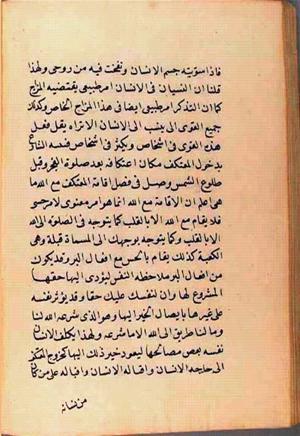 فاذا سويته جسم الانسان ونفخت فيه من روحى ولهذا
قلنا ان النسيان فى الانسان امر طبيعى يقتضيه المزاج
كما ان التذكر امر طبيعى ايضا فى هذا المزاج الخاص وكذلك
جميع القوى التى ينسب الى الانسان الا تراه يقل فعل
هذه القوى فى اشخاص ويكثر فى اشخاص فنبه الشارع
بدخول المعتكف مكان اعتكافه بعد صلوة الفجر وقبل
طلوع الشمس وصل فى فصل اقامة المعتكف مع الله ما
هى اعلم ان الاقامة مع الله انما هو امر معنوى لا امر حسى
فلا يقام مع الله الا بالقلب كما يتوجه فى الصلوة الى الله
الا بالقلب وكما يتوجه بوجهك الى المسماة قبلة وهى
الكعبة كذلك يقام بالحس مع افعال البر وقد يكون
من افعال البر ملاحظه النفس ليؤدى اليها حقها
المشروع لها وان لنفسك عليك حقا وقد يؤثر نفسه
على غيرها بايصال الخير اليها وهو الذى شرعه الله لنا
وما لنا طريق الى الله الا ما شرعه ولهذا يكلف الانسان
نفسه بعض مصالحها ليعود خير ذلك اليها كخروج المعتكف
الى حاجه الانسان واقباله الانسان واقباله على من كان
من نسائه